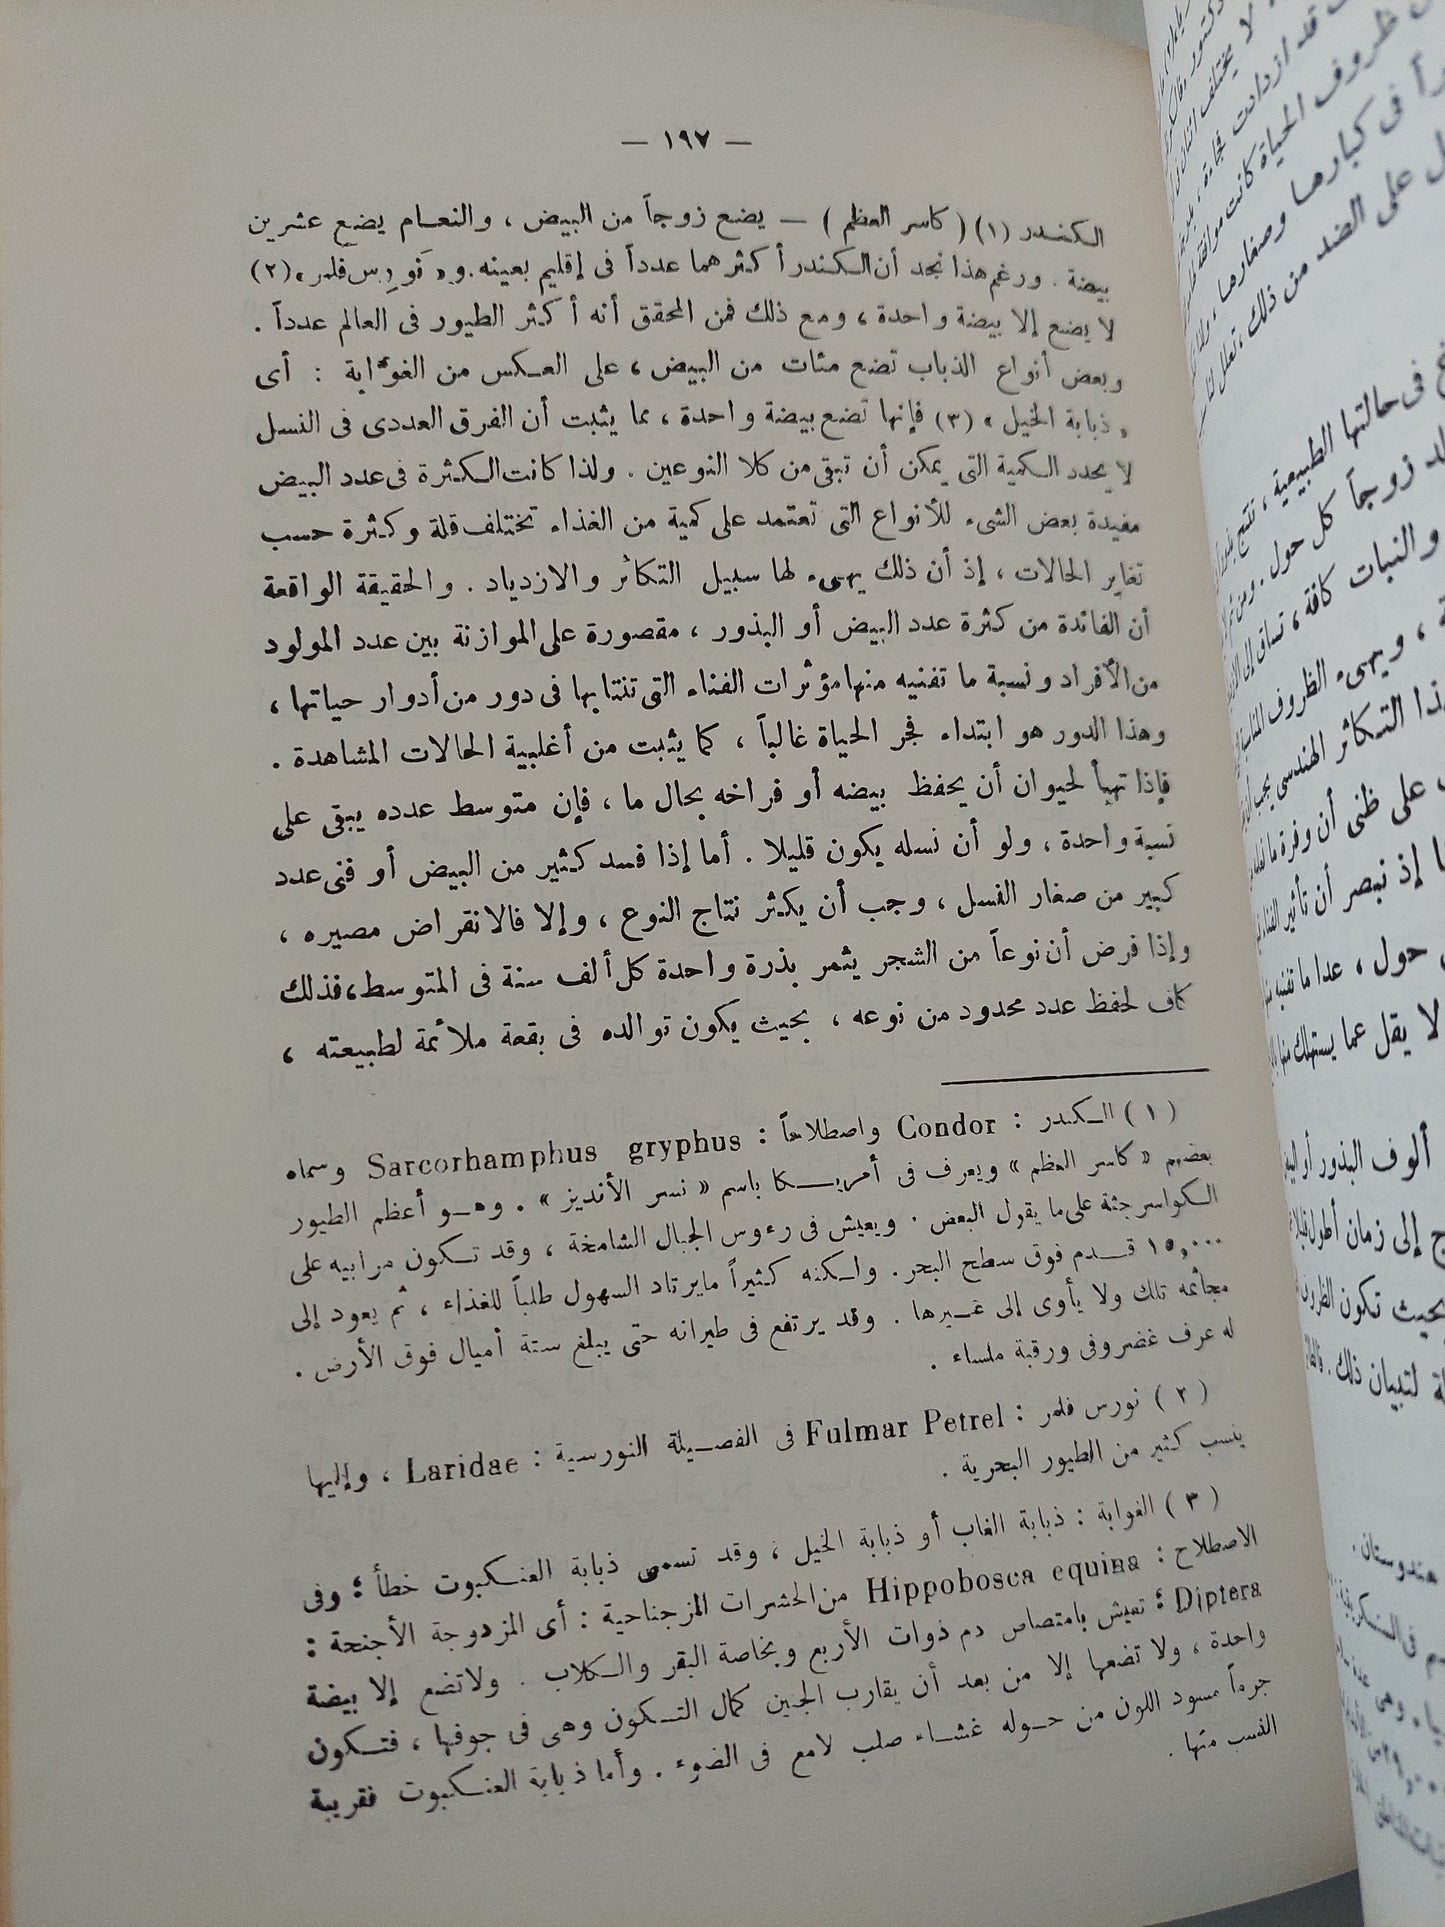 — ١٩٧ —
الكندر (١) ( كاسر العظم ) — يضع زوجاً من البيض ، والنعام يضع عشرين
بيضة . ورغم هذا نجد أن الكندر أكثرهما عدداً فى إقليم بعينه . و« نَورِس فلمر » (٢)
لا يضع إلا بيضة واحدة ، ومع ذلك فمن المحقق أنه أكثر الطيور فى العالم عدداً .
وبعض أنواع الذباب تضع مئات من البيض ، على العكس من الغوابة : أى
« ذبابة الخيل » (٣) فإنها تضع بيضة واحدة ، مما يثبت أن الفرق العددى فى النسل
لا يحدد الكمية التى يمكن أن تبقى من كلا النوعين . ولذا كانت الكثرة فى عدد البيض
مفيدة بعض الشىء للأنواع التى تعتمد على كمية من الغذاء تختلف قلة وكثرة حسب
تغاير الحالات ، إذ أن ذلك يهيىء لها سبيل التكاثر والازدياد . والحقيقة الواقعة
أن الفائدة من كثرة عدد البيض أو البذور ، مقصورة على الموازنة بين عدد المولود
من الأفراد ونسبة ما تفنيه منها مؤثرات الفناء التى تنتابها فى دور من أدوار حياتها ،
وهذا الدور هو ابتداء فجر الحياة غالباً ، كما يثبت من أغلبية الحالات المشاهدة .
فإذا تهيأ لحيوان أن يحفظ بيضه أو فراخه بحال ما ، فإن متوسط عدده يبقى على
نسبة واحدة ، ولو أن نسله يكون قليلا . أما إذا فسد كثير من البيض أو فنى عدد
كبير من صغار النسل ، وجب أن يكثر نتاج النوع ، وإلا فالانقراض مصيره ،
وإذا فرض أن نوعاً من الشجر يثمر بذرة واحدة كل ألف سنة فى المتوسط ، فذلك
كاف لحفظ عدد محدود من نوعه ، بحيث يكون توالده فى بقعة ملائمة لطبيعته ،
( ١ ) الكندر : Condor واصطلاحاً : Sarcorhamphus gryphus وسماه
بعضهم « كاسر العظم » ويعرف فى أمريكا باسم « نسر الأنديز » . وهو أعظم الطيور
الكواسر جثة على ما يقول البعض . ويعيش فى رءوس الجبال الشامخة ، وقد تكون مرابيه على
١٥,٠٠٠ قدم فوق سطح البحر . ولكنه كثيراً ما يرتاد السهول طلباً للغذاء ، ثم يعود إلى
مجاثمه تلك ولا يأوى إلى غيرها . وقد يرتفع فى طيرانه حتى يبلغ ستة أميال فوق الأرض .
له عرف غضروفى ورقبة ملساء .
( ٢ ) نورس فلمر : Fulmar Petrel فى الفصيلة النورسية : Laridae ، وإليها
ينسب كثير من الطيور البحرية .
( ٣ ) الغوابة : ذبابة الغاب أو ذبابة الخيل ، وقد تسمى ذبابة العنكبوت خطأ ؛ وفى
الاصطلاح : Hippobosca equina من الحشرات المزجناحية : أى المزدوجة الأجنحة :
Diptera ؛ تعيش بامتصاص دم ذوات الأربع وبخاصة البقر والكلاب . ولا تضع إلا بيضة
واحدة ، ولا تضعها إلا من بعد أن يقارب الجنين كمال التكون وهى فى جوفها ، فتكون
جرماً مسود اللون من حوله غشاء صلب لامع فى الضوء . وأما ذبابة العنكبوت فقريبة
النسب منها .
قد ازدادت فجاءة ،
ظروف الحياة كانت موافقة
فى كبارها وصغارها ،
على الضد من ذلك ، تعلل لنا
فى حالتها الطبيعية ، تنتج
زوجاً كل حول . ومن
والنبات كافة ، تساق إلى
، ويهىء الظروف
التكاثر الهندسى يجب أن
على ظنى أن وفرة ما
إذ نبصر أن تأثير
حول ، عدا ما تفنيه
لا يقل عما يستهلك منها
ألوف البذور أو
إلى زمان أطول
بحيث تكون
لتبيان ذلك .
هندوستان .